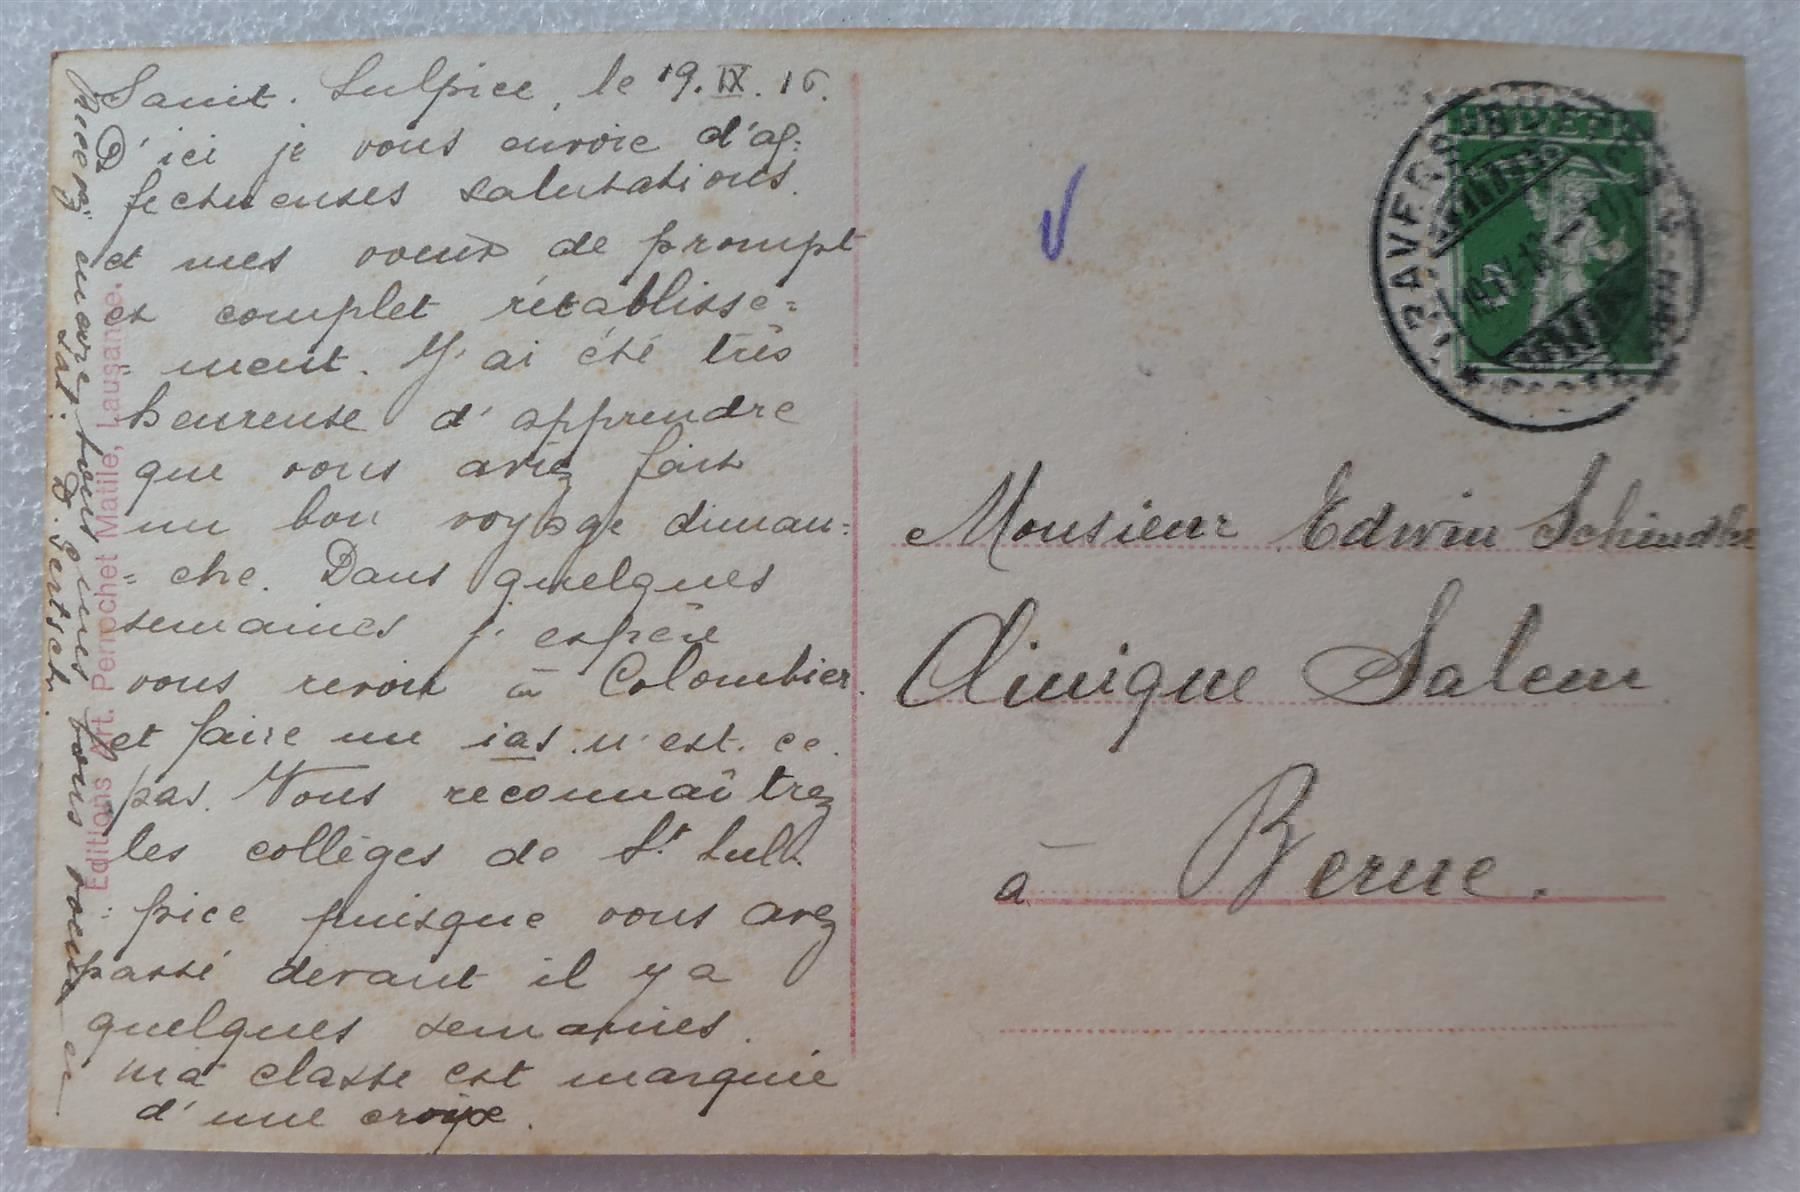 Saint. Sulpice, le 19. IX. 16.
D'ici je vous envoie d'af=
fectueuses salutations.
et mes voeux de prompt
et complet rétablisse=
= ment. J'ai été très
heureuse d'apprendre
que vous aviez fait
un bon voyage diman=
= che. Dans quelques
semaines j'espère
vous revoir à Colombier.
et faire un jas n'est. ce.
pas. Vous reconnaîtrez
les collèges de St. Sul=
= pice puisque vous avez
passé devant il y a
quelques semaines.
ma classe est marquée
d'une croix.
encore tous mes bons voeux
D. Gertsch.
Editions Art. Perrochet Matile, Lausanne.
HELVETIA
5
Monsieur Edwin Schindler
Clinique Salem
à Berne.